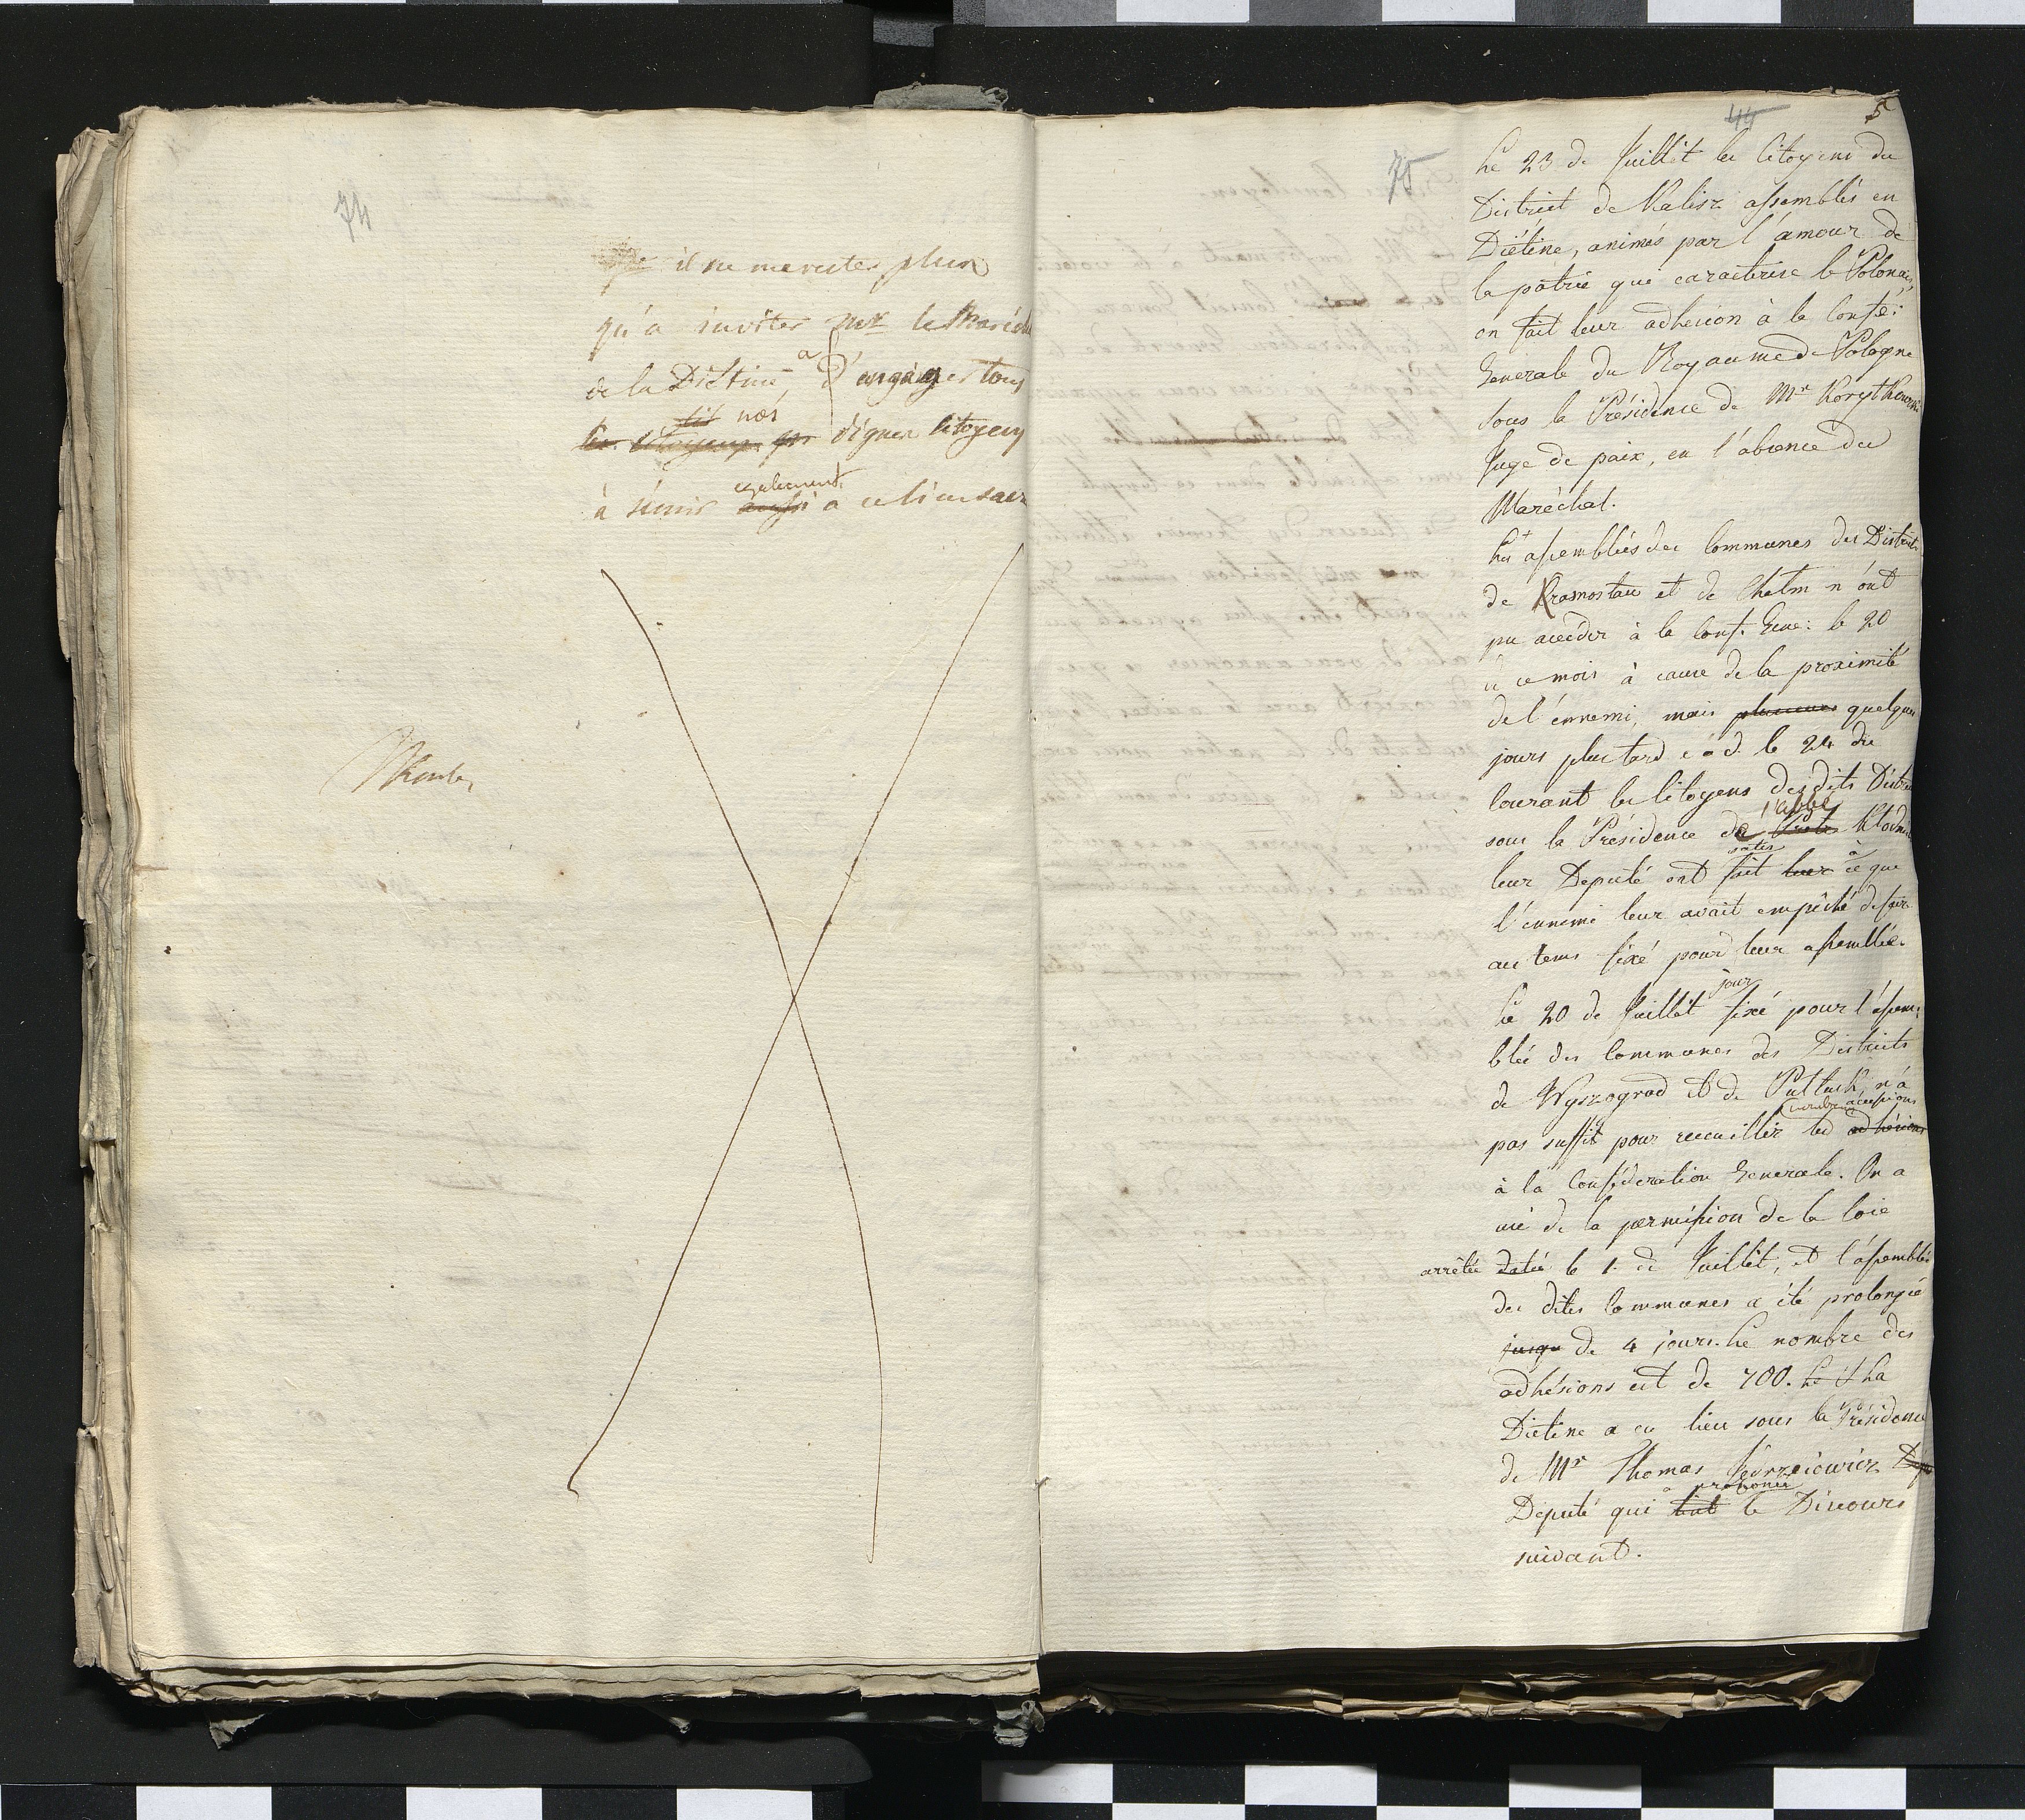 74
il ne me reste plus
qu'a inviter Mr le Maréch
de la Diétine, a d'engager tous
les citoyens nos dignes citoyens
à s'unir aussi egalement a ce lien sacr
75
44
5
Le 23 de Juillet les Citoyens du
District de Kalisz assemblés en
Diétine, animés par l'amour de
la patrie qui caracterise le Polonais,
on fait leur adhesion à la Confé:
Generale du Royaume de Pologne
sous la Présidence de Mr Korytkowski
Juge de paix, en l'absence du
Maréchal.
Les assemblés des Communes des Districts
de Krasnostaw et de Chelm n'ont
pu acceder à la Conf. Gene: le 20
d ce mois à cause de la proximité
de l'ennemi, mais plusieurs quelques
jours plus tard c à d. le 24 du
Courant les Citoyens des dits Distri
sous la Présidence de l'abbé
leur Deputé ont fait leur à ce que
l'ennemi leur avait empêché de fair
au tems fixé pour leur assemblée.
Le 20 de Juillet jour fixé pour l'assem:
blée des Communes des Districts
de Wyszogrod et de Pultusk, n'a
pas suffit pour recueillir les adhésions accessions
à la Confédération Generale. On a
usé de la permission de la loie
arrêtée datée le 1. de Juillet, et l'assemblée
des dites Communes a été prolongée
jusqu de 4 jours. Le nombre des
adhésions est de 700. Le La
Diétine a eu lieu sous la Présidence
de Mr Thomas Dep
Deputé qui a prononcé tint le Discours
suivant.